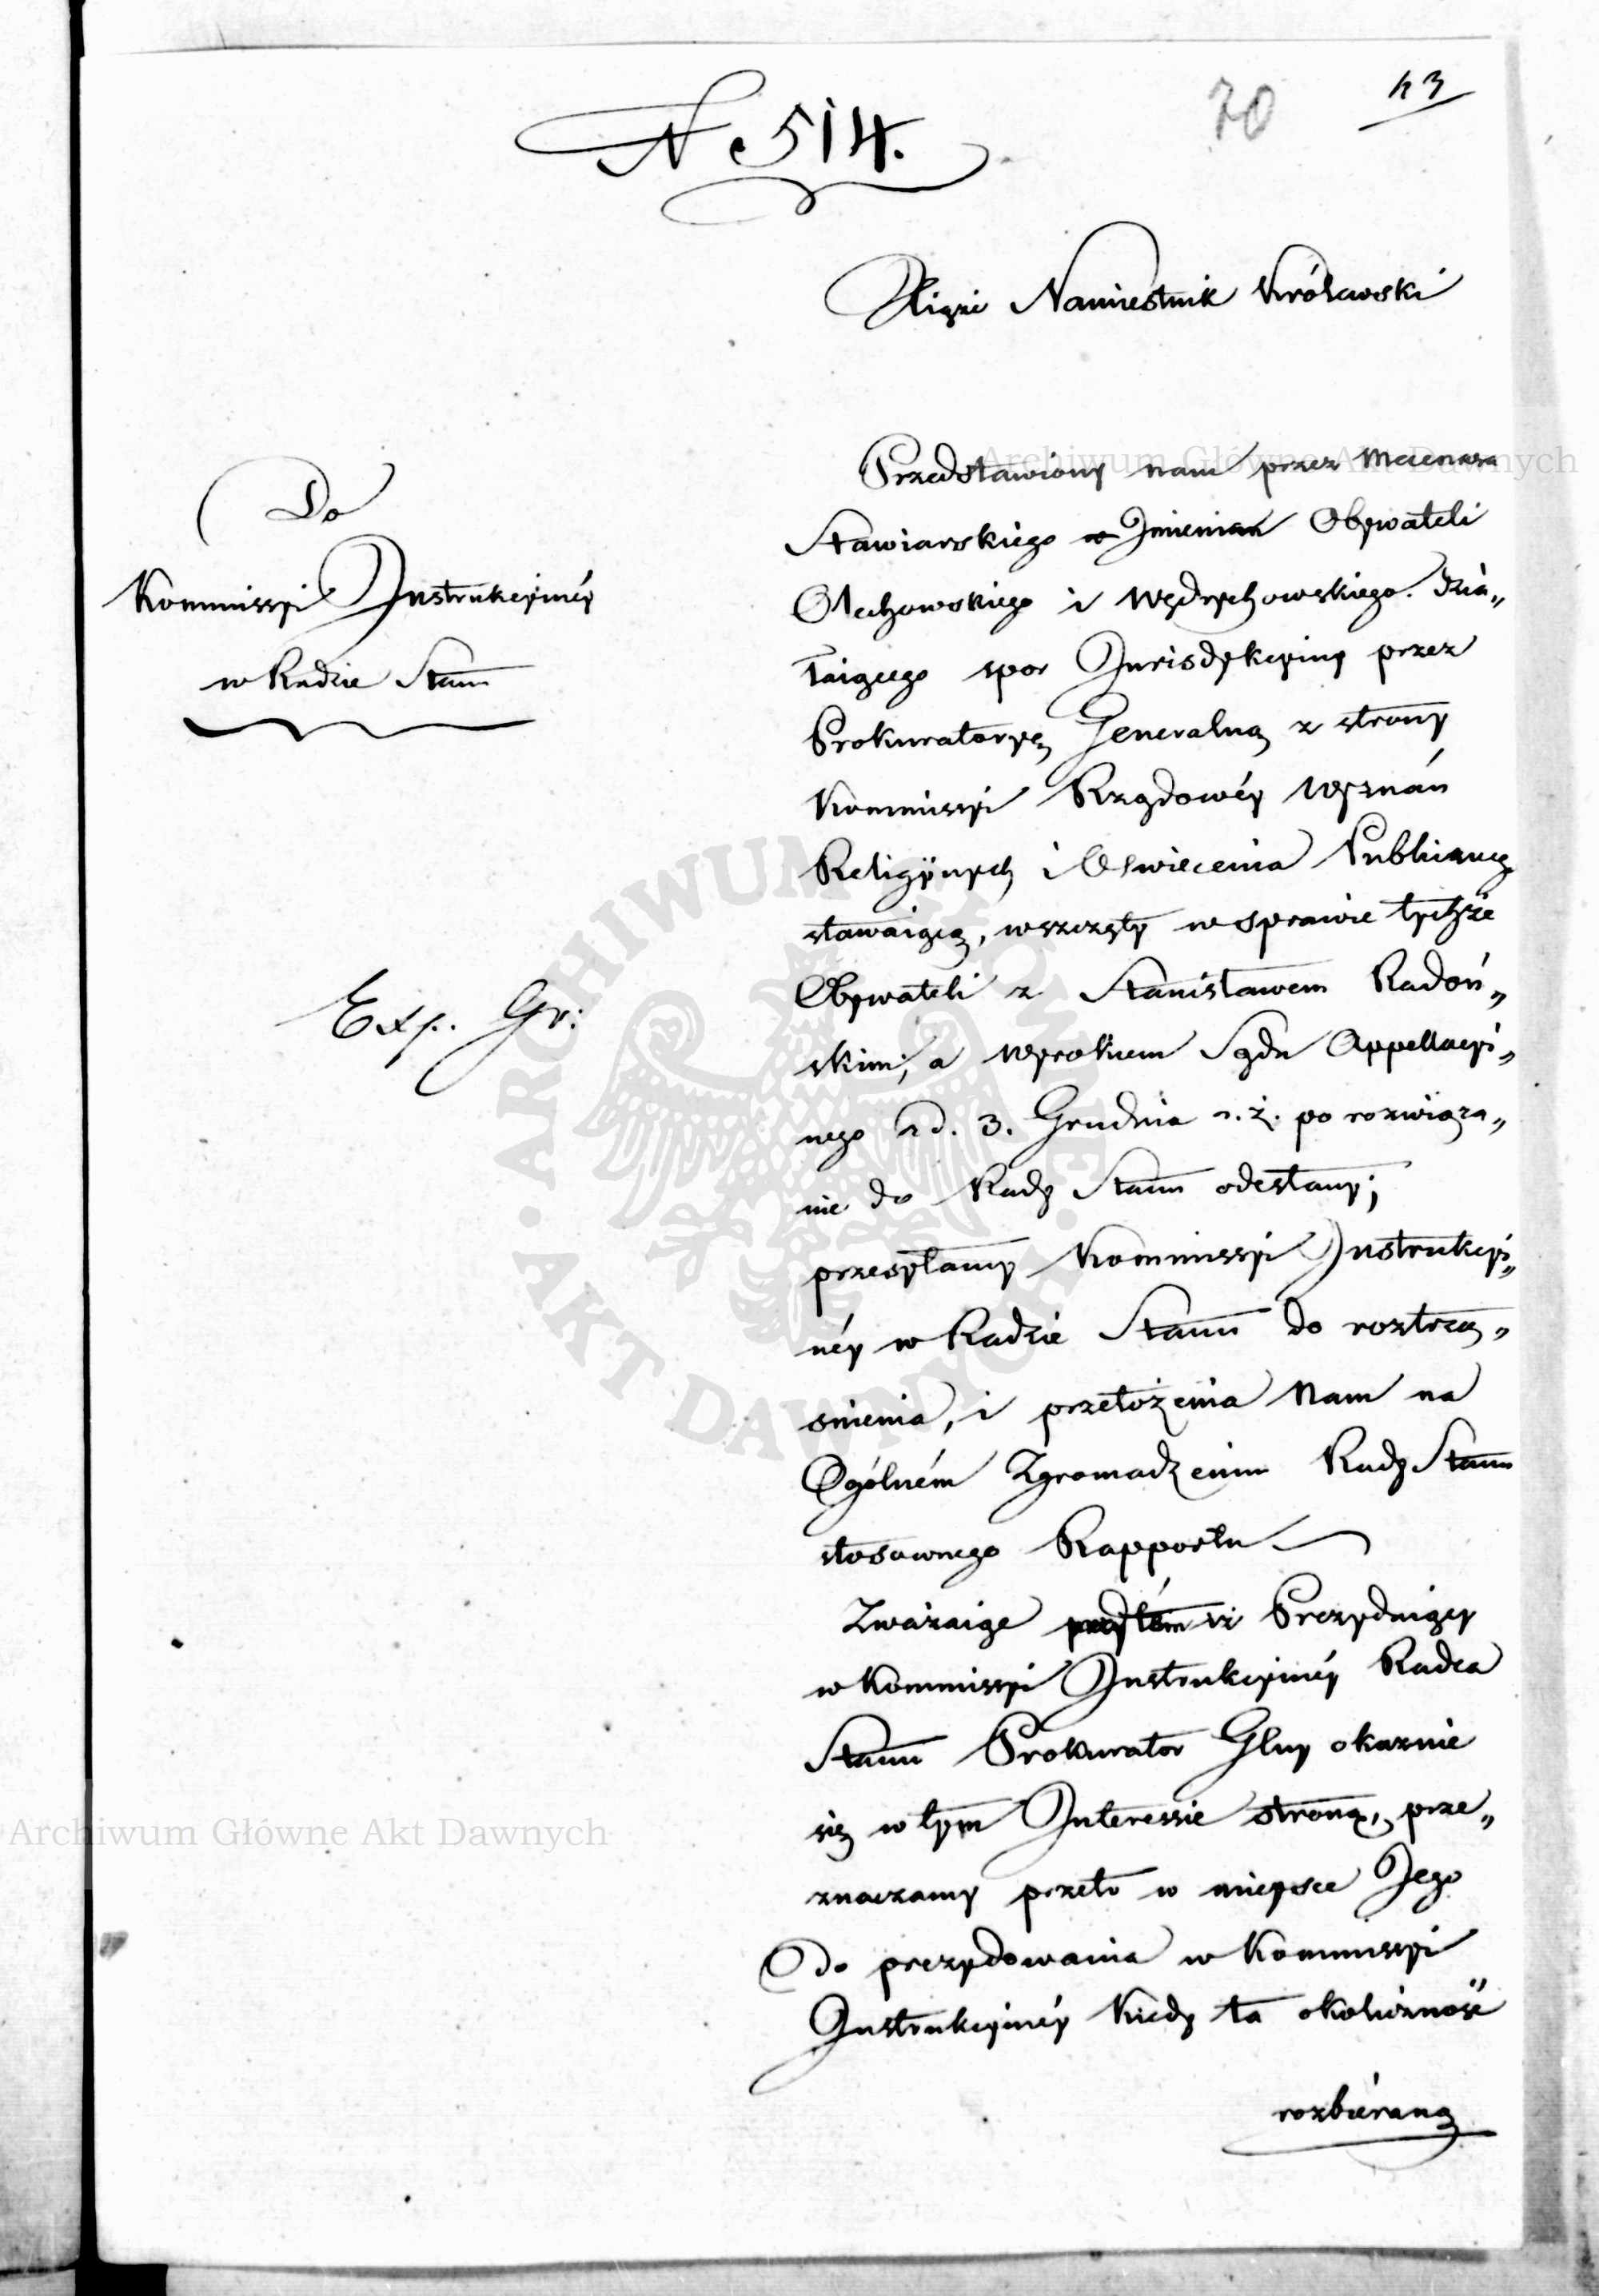 70
43
No 514.
Xiąże Namiestnik Królewski
Do
Kommissyi Instrukcyinéy
w Radzie Stanu
Exp. Gr:
Przedstawiony nam przez Mecenasa
Stawiarskiego w Jmieniu Obywateli
Olechowskiego i Wędrychowskiego. Dzia„
łaiącego spor Jurisdykcyiny przez
Prokuratoryą Generalną z strony
Kommissyi Rządowéy Wyznań
Religiynych i Oswiecenia Publiczneg
stawaiącą, wszczęty w sprawie tychże
Obywateli z Stanisławem Radoń„
skim, a Wyrokiem Sądu Appellacyi„
nego z d. 3. Grudnia r. z. po rozwiąza„
nie do Rady Stanu odesłany;
przesyłamy Kommissyi Instrukcyi„
néy w Radzie Stanu do roztrzą„
snienia, i przełożenia Nam na
Ogólném Zgromadzeniu Rady Stanu
stosownego Rapportu
Zważaiąc przytém iż Prezyduiący
w Kommissyi Instrukcyinéy Radca
Stanu Prokurator Glny okaznie
się w tym Interessie stroną, prze„
znaczamy przeto w mieysce Jego
Do prezydowania w Kommissyi
Instrukcyinéy kiedy ta okoliczność
rozbiéraną
Archiwum Główne Akt Dawnych
Archiwum Główne Akt Dawnych
ARCHIWUM GŁÓWNE · AKT DAWNYCH ·